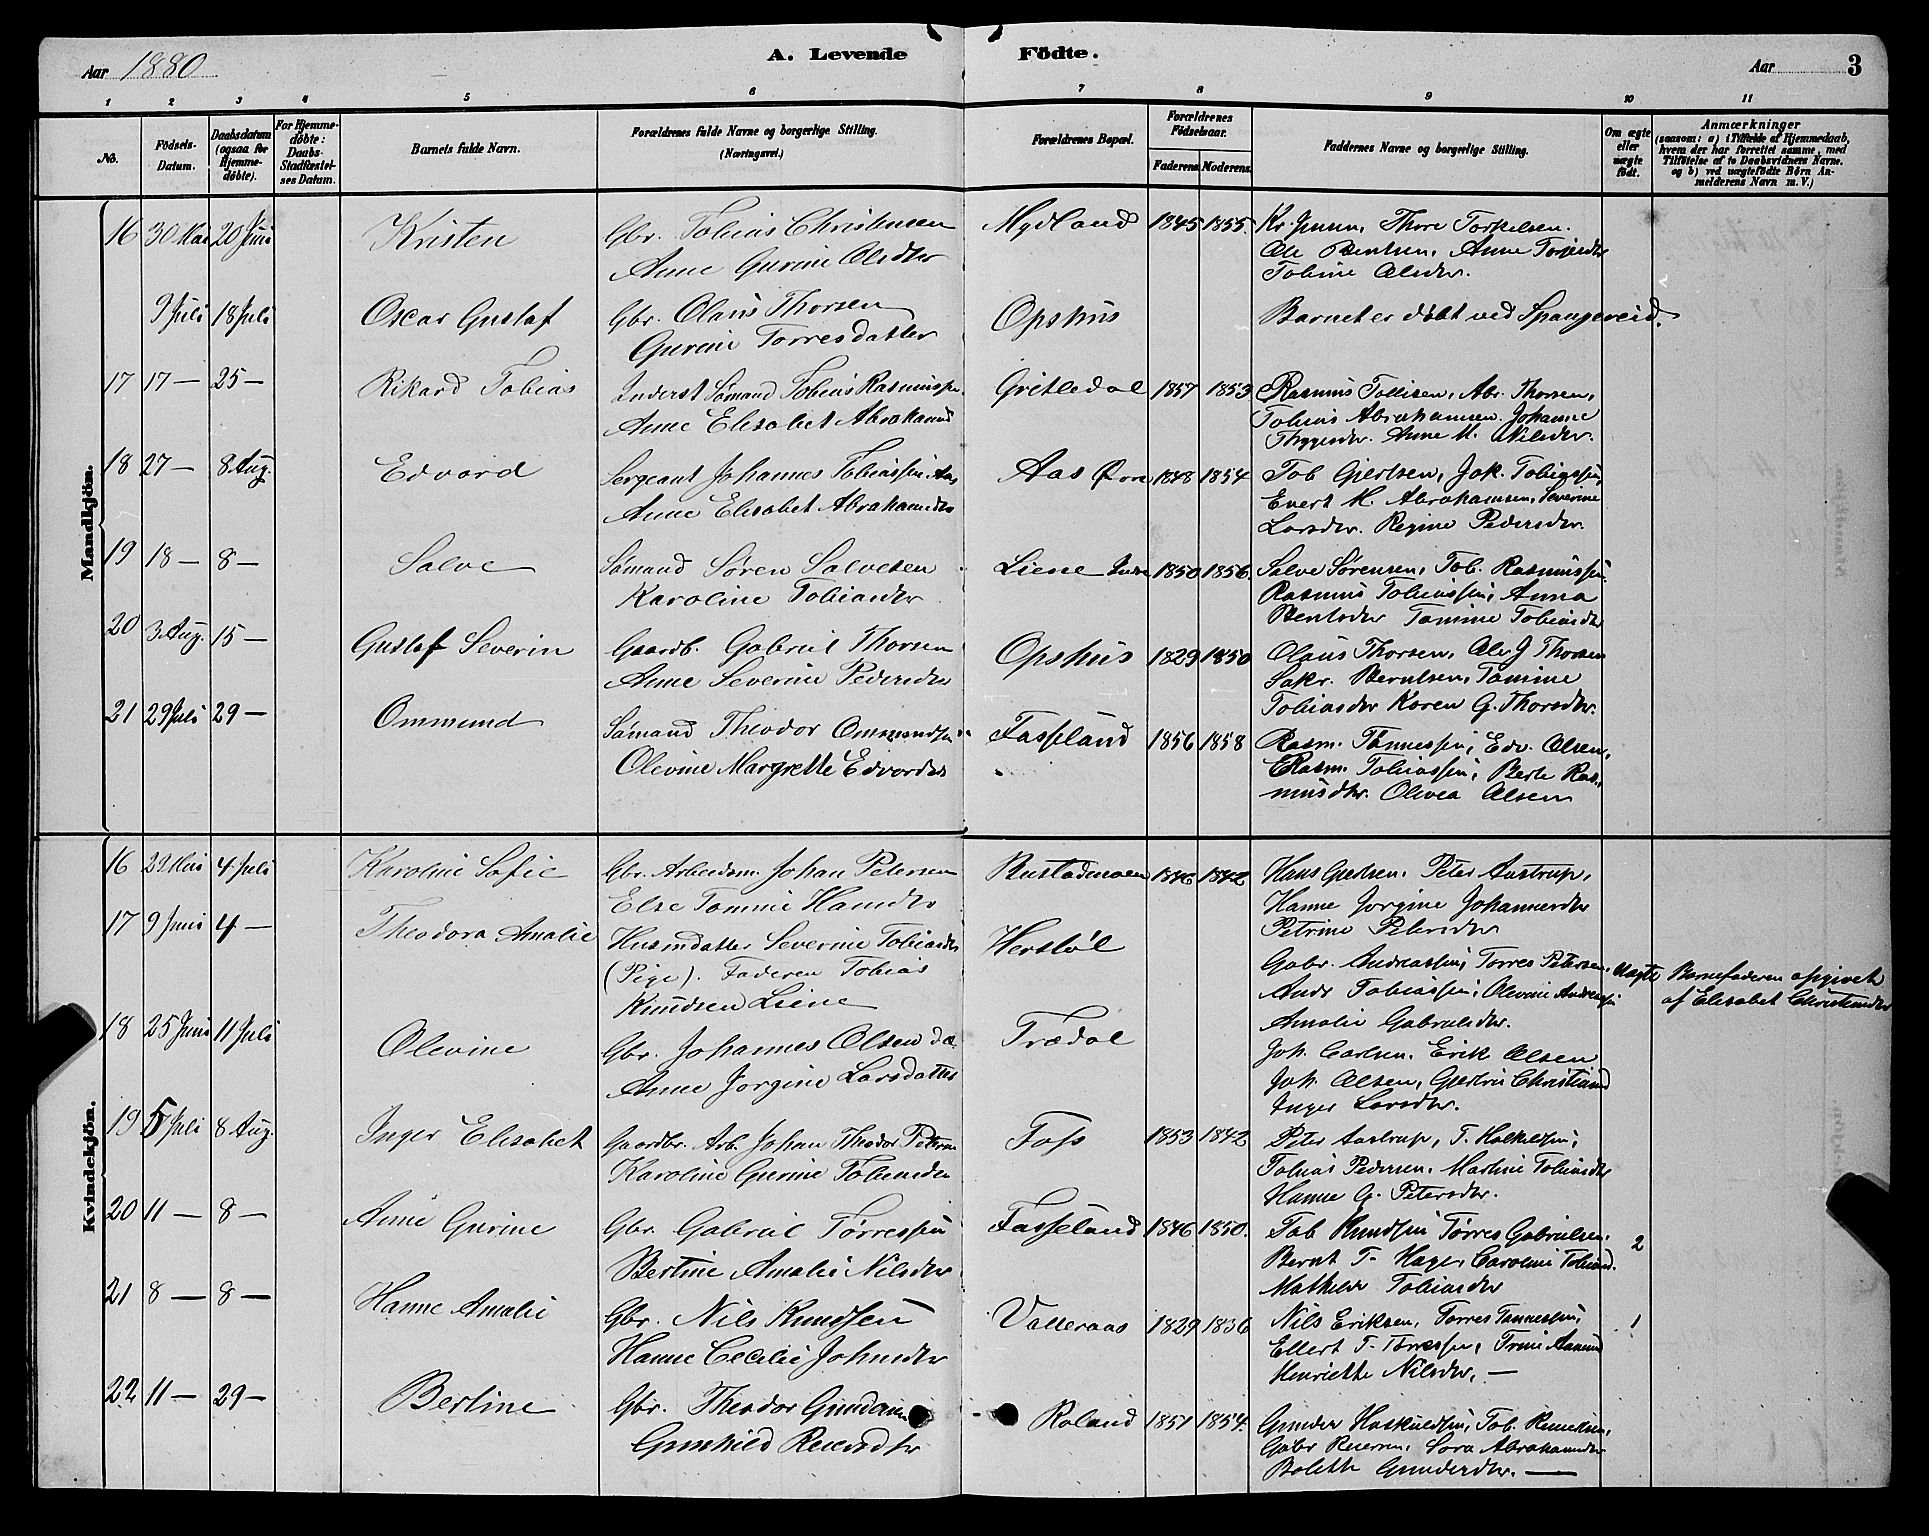 Aar 1880
A. Levende Födte.
Aar 3
1 2 3 4 5 6 7 8 9 10 11
No.
Födsels-Datum.
Daabsdatum (ogsaa for Hjemme-döbte).
For Hjemme-döbte: Daabs-Stadfæstel-ses Datum.
Barnets fulde Navn.
Forældrenes fulde Navne og borgerlige Stilling.
(Næringsvei.)
Forældrenes Bopæl.
Forældrenes Födselsaar.
Faderens Moderens
Faddernes Navne og borgerlige Stilling.
Om ægte eller uægte födt.
Anmærkninger
(saasom: a) i Tilfælde af Hjemmedaab,
hvem der har forrettet samme, med
Tilföielse af to Daabsvidners Navne.
og b) ved uægtefödte Börn An-
melderens Navn m. V.)
Mandkjön.
16 30 Mai 20 Juni Kristen Gbr. Tobias Christensen Mydland 1845 1855. Kr. Jensen, Thore Torkelsen.
Anne Gurine Olsdtr Ole Bentsen, Anne
Tobine Olsdtr.
9 Juli 18 Juli Oscar Gustaf Gbr. Olaus Thorsen Opshus Barnet er döbt ved Spangereid.
Gurine Torresdatter
17 17 — 25 — Rikard Tobias Inderst Sömand Tobias Rasmussen Gritledal 1857 1853 Rasmus Tollisen, Abr. Thorsen,
Anne Elisabet Abrahamsd Tobias Abrahamsen. Johanne
Anne M. Nilsdtr.
18 27 — 8 Aug. Edvard Sergeant Johannes Tobiassen Aas Aas Övre 1848 1854 Tob Gjertsen, Jok. Tobiassen,
Anne Elisabet Abrahamsdtr Evert M. Abrahamsen, Severine
Larsdtr. Regine Pedersdtr.
19 18 — 8 — Salve Sömand Sören Salvesen Liene Indre 1850 1856. Salve Sörensen, Tob. Rasmussen
Karoline Tobiasdtr Rasmus Tobiassen, Anna
Bentsdtr Tomine Tobiasdtr
20 3 Aug. 15 — Gustaf Severin Gaardb. Gabriel Thorsen Opshus 1829 1850 Olaus Thorsen, Ole J Thorsen
Anne Severine Pedersdtr Sakr. Berntsen, Tomine
Tobiasdtr Karen G. Thorsdtr.
21 29 Juli 29 — Ommund Sömand Theodor Ommundsen Fasseland 1856 1858 Rasm. Tönnessen, Edv. Olsen,
Olevine Margrethe Edvardsdtr Rasm. Tobiassen, Berte Ras-
musdtr. Olivea Olsen
Kvindekjön.
16 4 Juli Karoline Sofie Gbr. Arbeidsm. Johan Petersen 1846 1842 Hans Gjertsen. Peter Aastrup,
Else Tomine Hansdtr Hanne Jorgine Johannesdtr
Petrine Petersdtr
17 9 Juni 4 — Theodora Amalie Husmdatter Severine Tobiasdtr Herstöl Gabr. Andreassen, Torres Petersen, Uægte Barnefaderen opgivet
(Pige). Faderen Tobias Andr Tobiassen, Olevine af Elisabet Christiansdtr
Knudsen Liene Amalie Gabrielsdtr.
18 25 Juni 11 Juli Olevine Gbr. Johannes Olsen Trædal Joh. Carlsen. Erik Olsen
Anne Jorgine Larsdatter Joh. Olsen, Gjertrine Christiansd
Inger Larsdtr.
19 5 Juli 8 Aug. Inger Elisabet Gaardbr. Arb. Johan Theodor Petersen Foss 1853 1842 Peter Aastrup, T. Halkeldsen,
Karoline Gurine Tobiasdtr Tobias Pedersen. Martine Tobiasdtr
Hanne G. Petersdtr.
20 11 — 8 — Anne Gurine Gbr. Gabriel Törressen Fasseland 1846 1850. Tob Knudsen Törres Gabrielsen. 2
Bertine Amalie Nilsdtr. Bernt T. Caroline Tobiasd.
Mathilde Tobiasdtr
21 8 — 8 — Hanne Amalie Gbr. Nils Knudsen Valleraas 1829 1836 Nils Eriksen, Torres Tønnessen, 1
Hanne Cecilie Johnsdtr Ellert T. Törressen, Trine
Henriette Nilsdtr, —
22 11 — 29 — Bertine Gbr. Theodor Gundersen Roland 1851 1854. Gunder Haskeldsen, Tob.
Gunhild Gabr Sara Abrahamsdtr
Bolette Gundersdtr. —